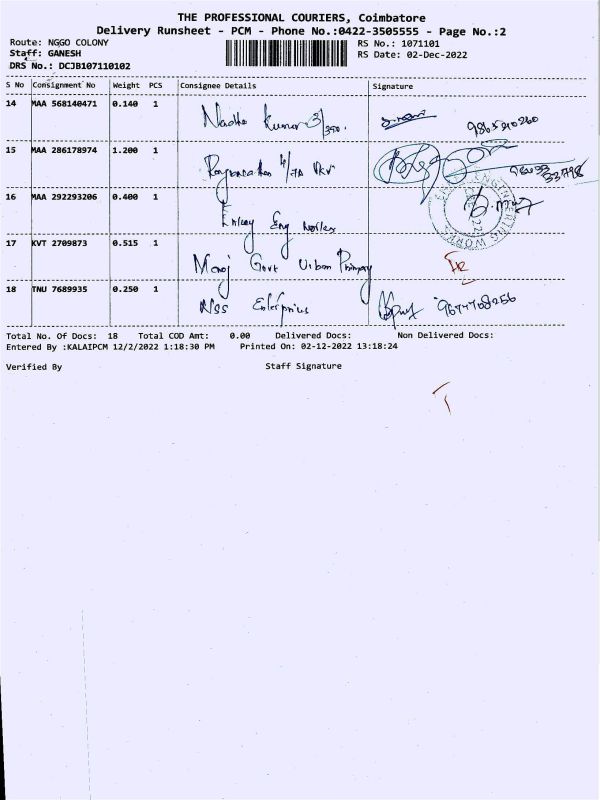 THE PROFESSIONAL COURIERS, Coimbatore
Delivery Runsheet - PCM - Phone No.:0422-3505555 - Page No.:2
Route: NGGO COLONY
RS No.: 1071101
Staff: GANESH
RS Date: 02-Dec-2022
DRS No.: DCJB107110102
S No Consignment No Weight PCS Consignee Details Signature
14 MAA 568140471 0.140 1 Kumar
15 MAA 286178974 1.200 1
16 MAA 292293206 0.400 1 Eng
17 KVT 2709873 0.515 1 Manoj Govt Urban Primary
18 TNU 7689935 0.250 1 NSS Enterprises
Total No. Of Docs: 18 Total COD Amt: 0.00 Delivered Docs: Non Delivered Docs:
Entered By :KALAIPCM 12/2/2022 1:18:30 PM Printed On: 02-12-2022 13:18:24
Verified By Staff Signature